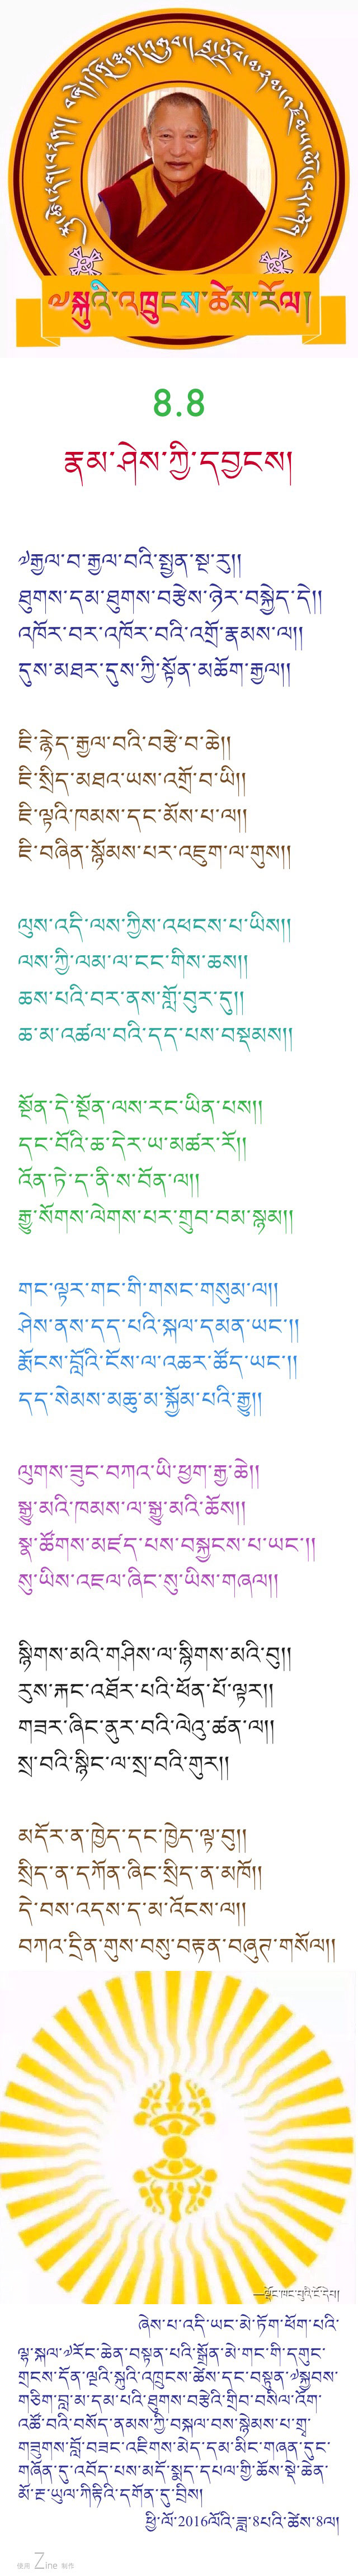 ༧སྐུའི་འཁྲུངས་ཚེས་རོལ།
8.8
རྣམ་ཤེས་ཀྱི་དབྱངས།
༧རྒྱལ་བ་རྒྱལ་བའི་སྤྱན་སྔ་རུ།།
ཐུགས་དམ་ཐུགས་བརྩེས་ཉེར་བསྐྱེད་དེ།།
འཁོར་བར་འཁོར་བའི་འགྲོ་རྣམས་ལ།།
དུས་མཐར་དུས་ཀྱི་སྟོན་མཆོག་རྒྱལ།།
ཇི་རྙེད་རྒྱལ་བའི་བརྩེ་བ་ཆེ།།
ཇི་སྲིད་མཐའ་ཡས་འགྲོ་བ་ཡི།།
ཇི་ལྟའི་ཁམས་དང་མོས་པ་ལ།།
ཇི་བཞིན་སྙོམས་པར་འཇུག་ལ་གུས།།
ལུས་འདི་ལས་ཀྱིས་འཕངས་པ་ཡིས།།
ལས་ཀྱི་ལམ་ལ་ངང་གིས་ཆས།།
ཆས་པའི་བར་ནས་གློ་བུར་དུ།།
ཆ་མ་འཚལ་བའི་དད་པས་བསྡམས།།
སྔོན་དེ་སྔོན་ལས་རང་ཡིན་པས།།
དང་བོའི་ཆ་དེར་ཡ་མཚར་རོ།།
འོན་ཏེ་ད་ནི་ས་བོན་ལ།།
རྒྱུ་སོགས་ལེགས་པར་གྲུབ་བམ་སྙམ།།
གང་ལྟར་གང་གི་གསང་གསུམ་ལ།།
ཤེས་ནས་དད་པའི་སྐལ་དམན་ཡང་།།
རྨོངས་བློའི་ངོས་ལ་འཆར་ཚོད་ཡང་།།
དད་སེམས་མཆུ་མ་སྐྱོམ་པའི་རྒྱུ།།
ལུགས་ཟུང་བཀའ་ཡི་ཕྱག་རྒྱ་ཆེ།།
སྒྱུ་མའི་ཁམས་ལ་སྒྱུ་མའི་ཆོས།།
སྣ་ཚོགས་མཛད་པས་བསྐྱངས་པ་ཡང་།།
སུ་ཡིས་འཇལ་ཞིང་སུ་ཡིས་གཞལ།།
སྙིགས་མའི་གཤིས་ལ་སྙིགས་མའི་བུ།།
རུས་རྐང་འཐོར་པའི་ཕོན་པོ་ལྟར།།
གཟར་ཞིང་ནུར་བའི་ལེའུ་ཚན་ལ།།
སྲ་བའི་སྙིང་ལ་སྲ་བའི་གུར།།
མདོར་ན་ཁྱེད་དང་ཁྱེད་ལྟ་བུ།།
སྲིད་ན་དཀོན་ཞིང་སྲིད་ན་མཁོ།།
དེ་བས་འདས་ད་མ་འོངས་ལ།།
བཀའ་དྲིན་གུས་བསུ་བརྟན་བཞུཊ་གསོལ།།
ཞེས་པ་འདི་ཡང་མེ་ཏོག་ཕོག་པའི་
ལྷ་སྐལ་༧རོང་ཆེན་བསྟན་པའི་སྒྲོན་མེ་གང་གི་དགུང་
གྲངས་དོན་ལྔའི་སྐུའི་འཁྲུངས་ཚེས་དང་བསྟུན་༧སྐྱབས་
གཅིག་བླ་མ་དམ་པའི་ཐུགས་བརྩེའི་གྲིབ་བསིལ་འོག་
འཚོ་བའི་བསོད་ནམས་ཀྱི་བསྐལ་བས་སྙེམས་པ་གྲྭ་
གཟུགས་བློ་བཟང་འཇིགས་མེད་དམ་མིང་གཞན་དུང་
གཞོན་དུ་འབོད་པས་མདོ་སྨད་དཔལ་གྱི་ཆོས་སྡེ་ཆེན་
མོ་རྔ་ཡུལ་ཀིརྟིའི་དགོན་དུ་བྲིས།
ཕྱི་ལོ་2016ལོའི་ཟླ་8པའི་ཚེས་8ལ།
使用 Zine 制作